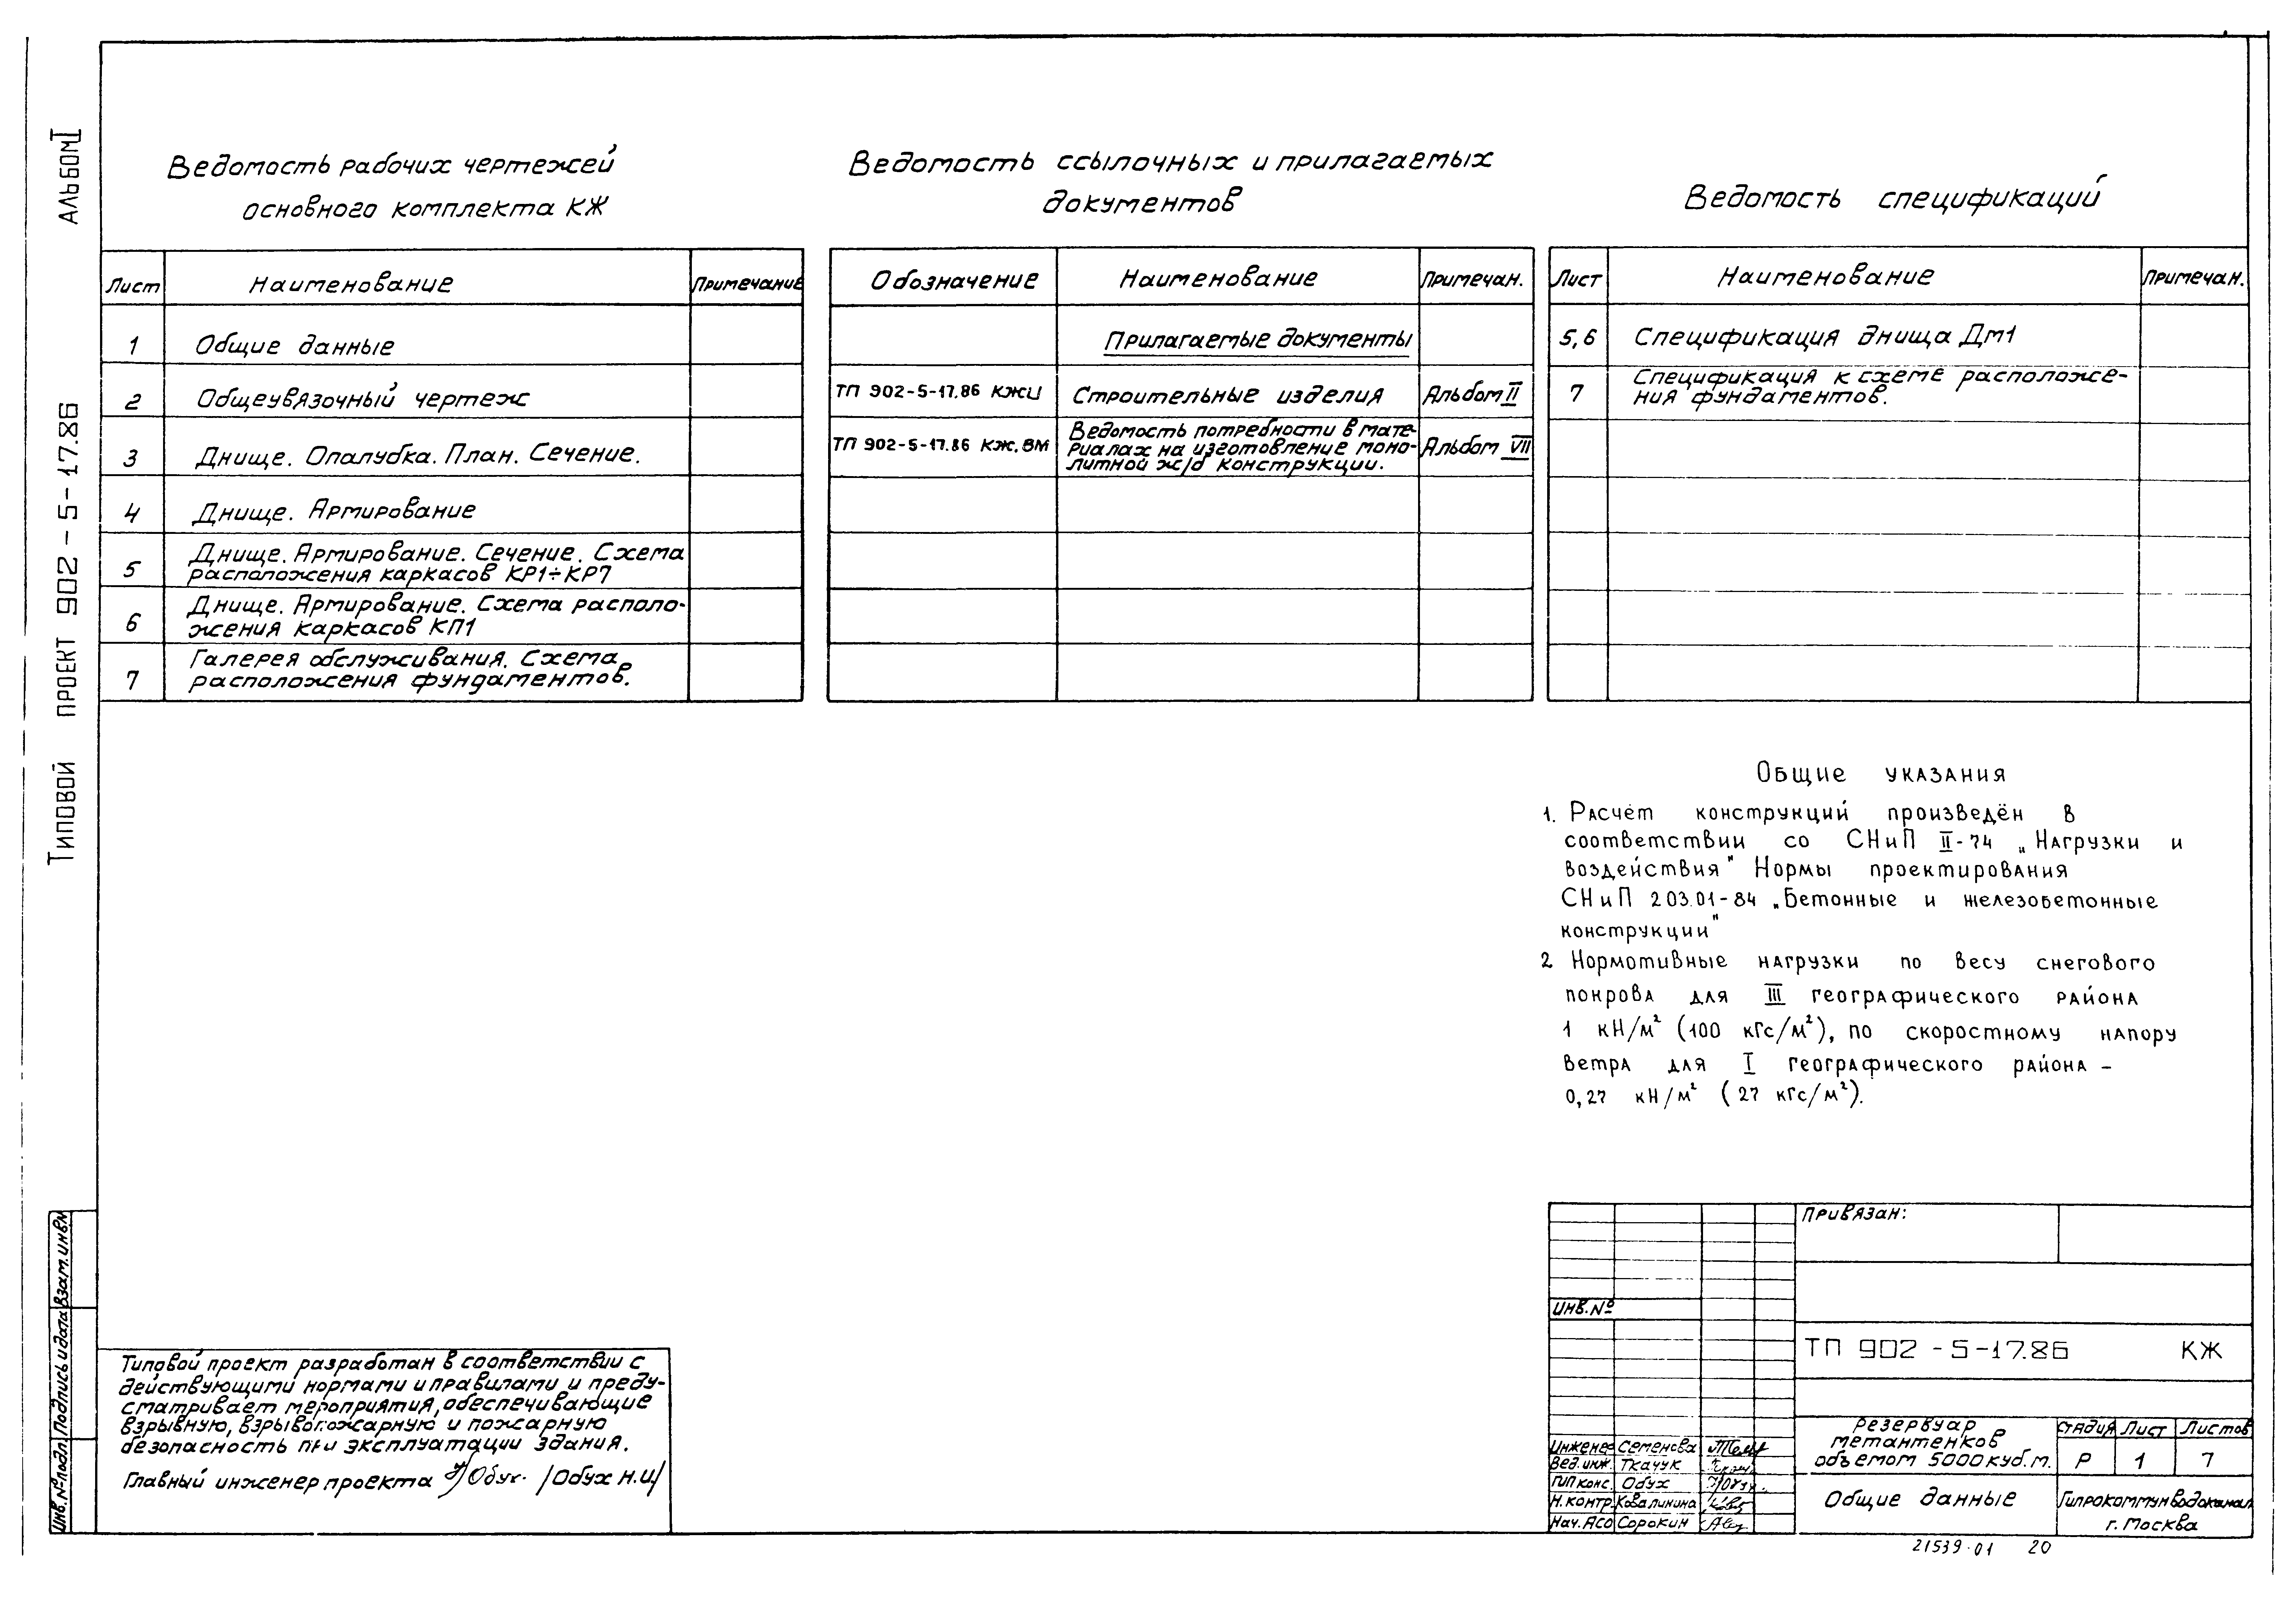 Альбом I
Типовой проект 902-5-17.86
Ведомость рабочих чертежей
основного комплекта КЖ
Лист Наименование Примечание
1 Общие данные
2 Общеувязочный чертеж
3 Днище. Опалубка. План. Сечение.
4 Днище. Армирование
5 Днище. Армирование. Сечение. Схема
расположения каркасов КР1÷КР7
6 Днище. Армирование. Схема располо-
жения каркасов КП1
7 Галерея обслуживания. Схема
расположения фундаментов.
Ведомость ссылочных и прилагаемых
документов
Обозначение Наименование Примечан.
Прилагаемые документы
ТП 902-5-17.86 КЖИ Строительные изделия Альбом II
ТП 902-5-17.86 КЖ.ВМ Ведомость потребности в мате-
риалах на изготовление моно-
литной ж/б конструкции. Альбом VII
Ведомость спецификаций
Лист Наименование Примечан.
5,6 Спецификация днища Дм1
7 Спецификация к схеме расположе-
ния фундаментов.
Общие указания
1. Расчёт конструкций произведён в
соответствии со СНиП II-74 „Нагрузки и
воздействия" Нормы проектирования
СНиП 2.03.01-84 „Бетонные и железобетонные
конструкции"
2 Нормотивные нагрузки по весу снегового
покрова для III географического района
1 кН/м² (100 кгс/м²), по скоростному напору
ветра для I географического района -
0,27 кН/м² (27 кгс/м²).
Типовой проект разработан в соответствии с
действующими нормами и правилами и преду-
сматривает мероприятия, обеспечивающие
взрывную, взрывопожарную и пожарную
безопасность при эксплуатации здания.
Главный инженер проекта Обух /Обух Н.И/
Инв.№подл. Подпись и дата Взам.инв№
Привязан:
Инв.№
ТП 902-5-17.86 КЖ
Инженер Семенова
Вед.инж. Ткачук
ГИП конс. Обух
Н.контр. Ковалинина
Нач.АСО Сорокин
Резервуар
метантенков
объемом 5000 куб.м.
Стадия Лист Листов
Р 1 7
Общие данные
Гипрокоммунводоканал
г. Москва
21539-01 20